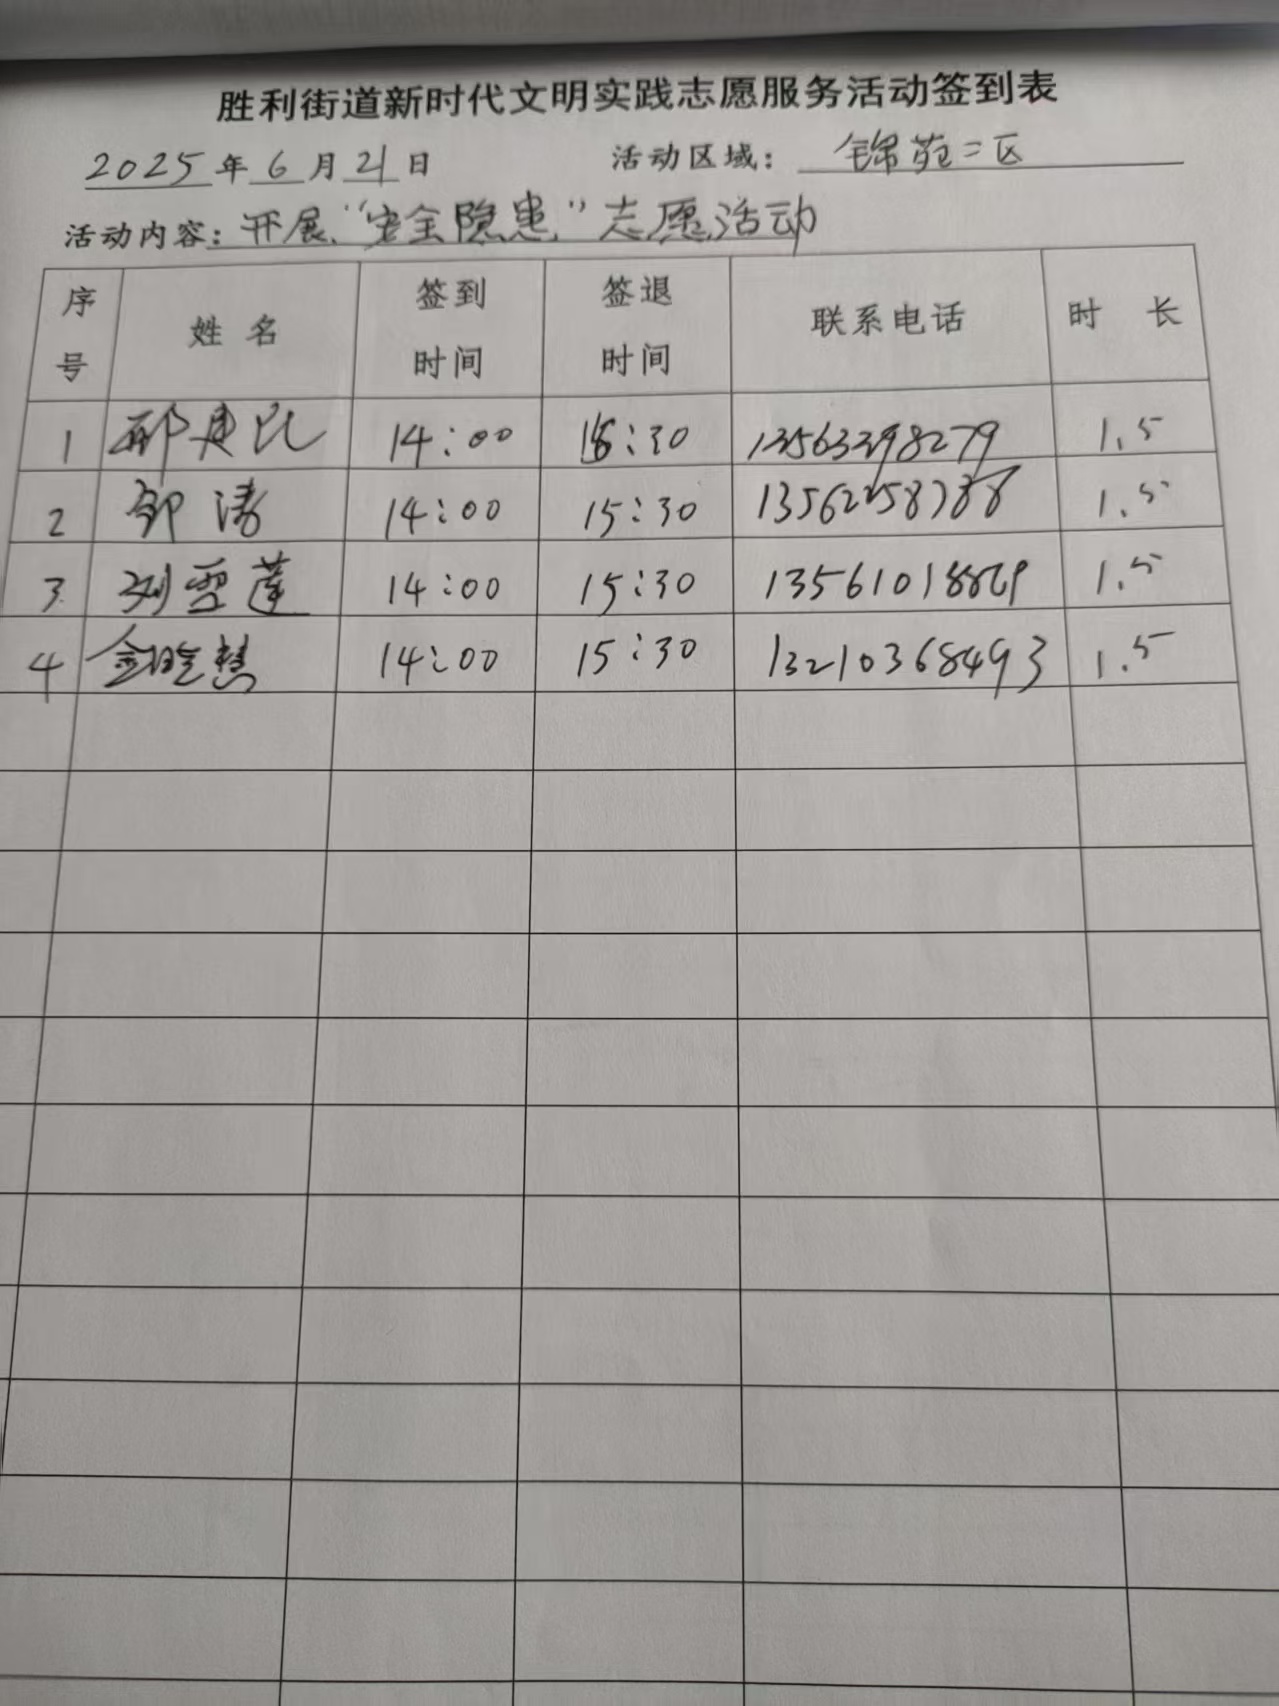 胜利街道新时代文明实践志愿服务活动签到表
2025年6月21日 活动区域：锦苑二区
活动内容：开展“安全隐患”志愿活动
序号 姓名 签到时间 签退时间 联系电话 时长
1 14:00 15:30 13563398279 1.5
2 邹涛 14:00 15:30 1.5
3 刘雪莲 14:00 15:30 1.5
4 14:00 15:30 13210368493 1.5